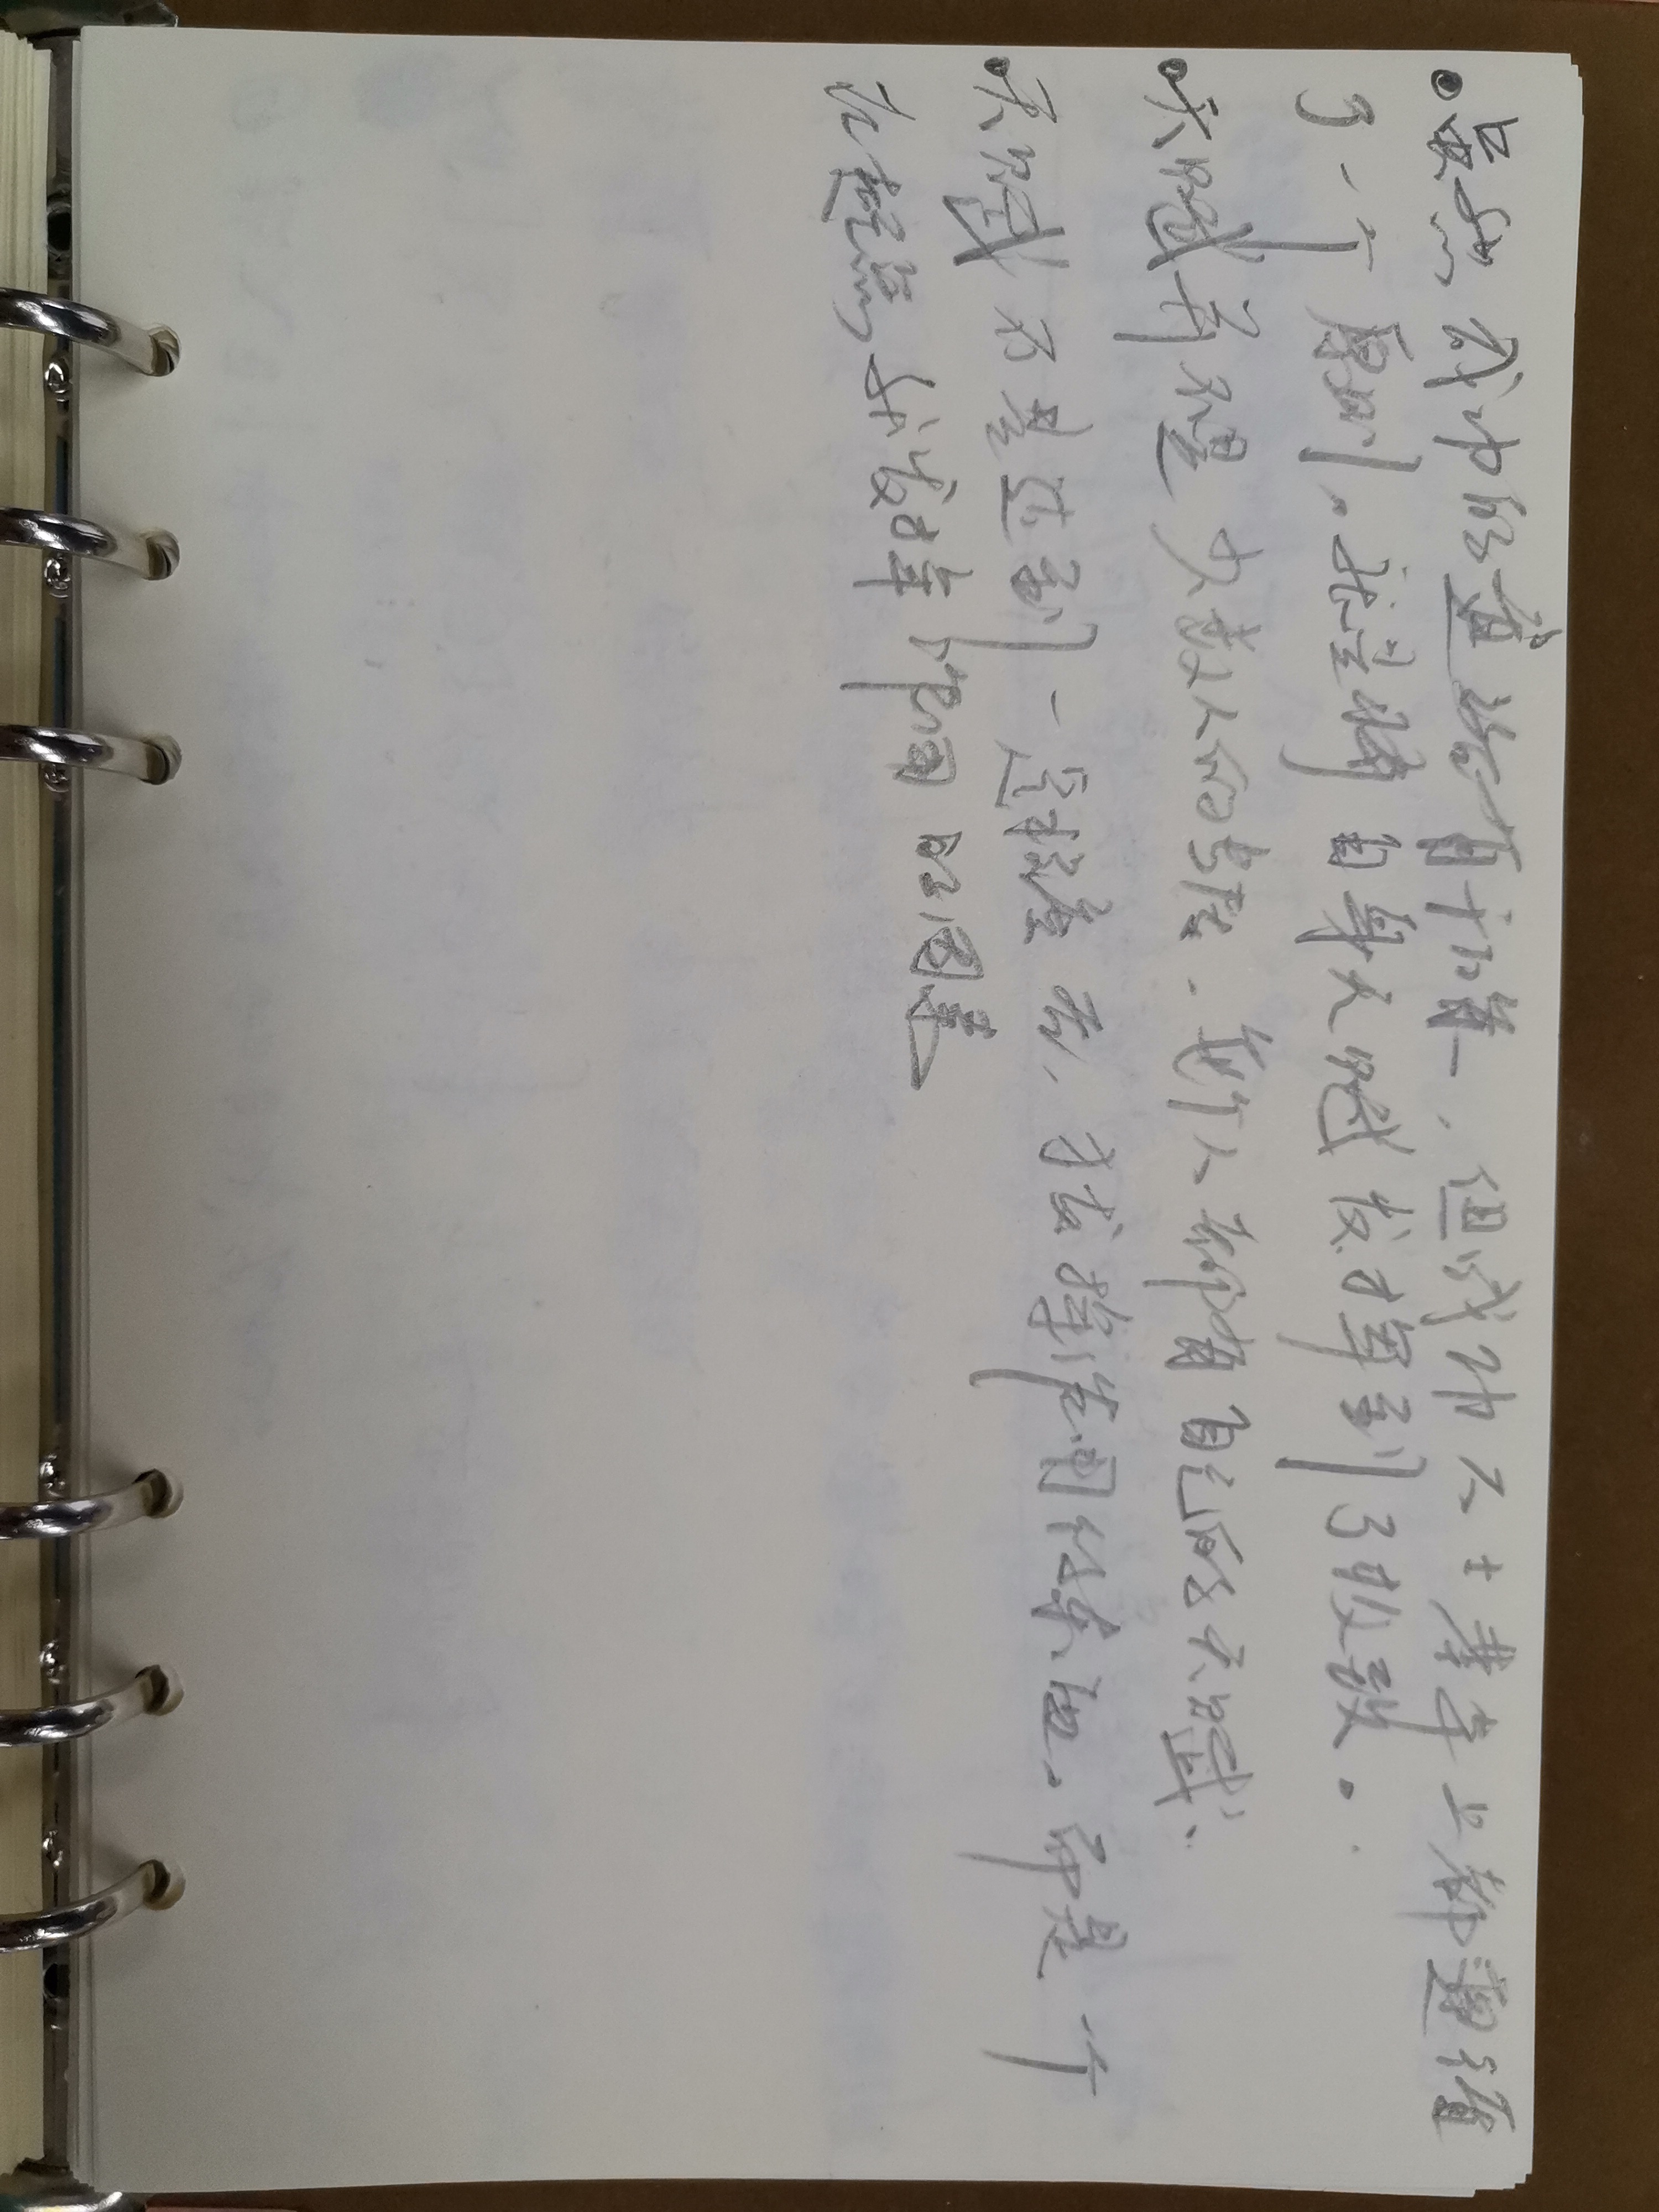 ●虽然成功的道路有千万条，但成功人士基本上都遵循
了一个原则。就是将自身天赋发挥到了极致。
●天赋并不是少数人的专属。每个人都有自己的天赋。
●天赋不是达到一定程度后，才发挥作用的东西。而是一个
在起点就发挥作用的因素